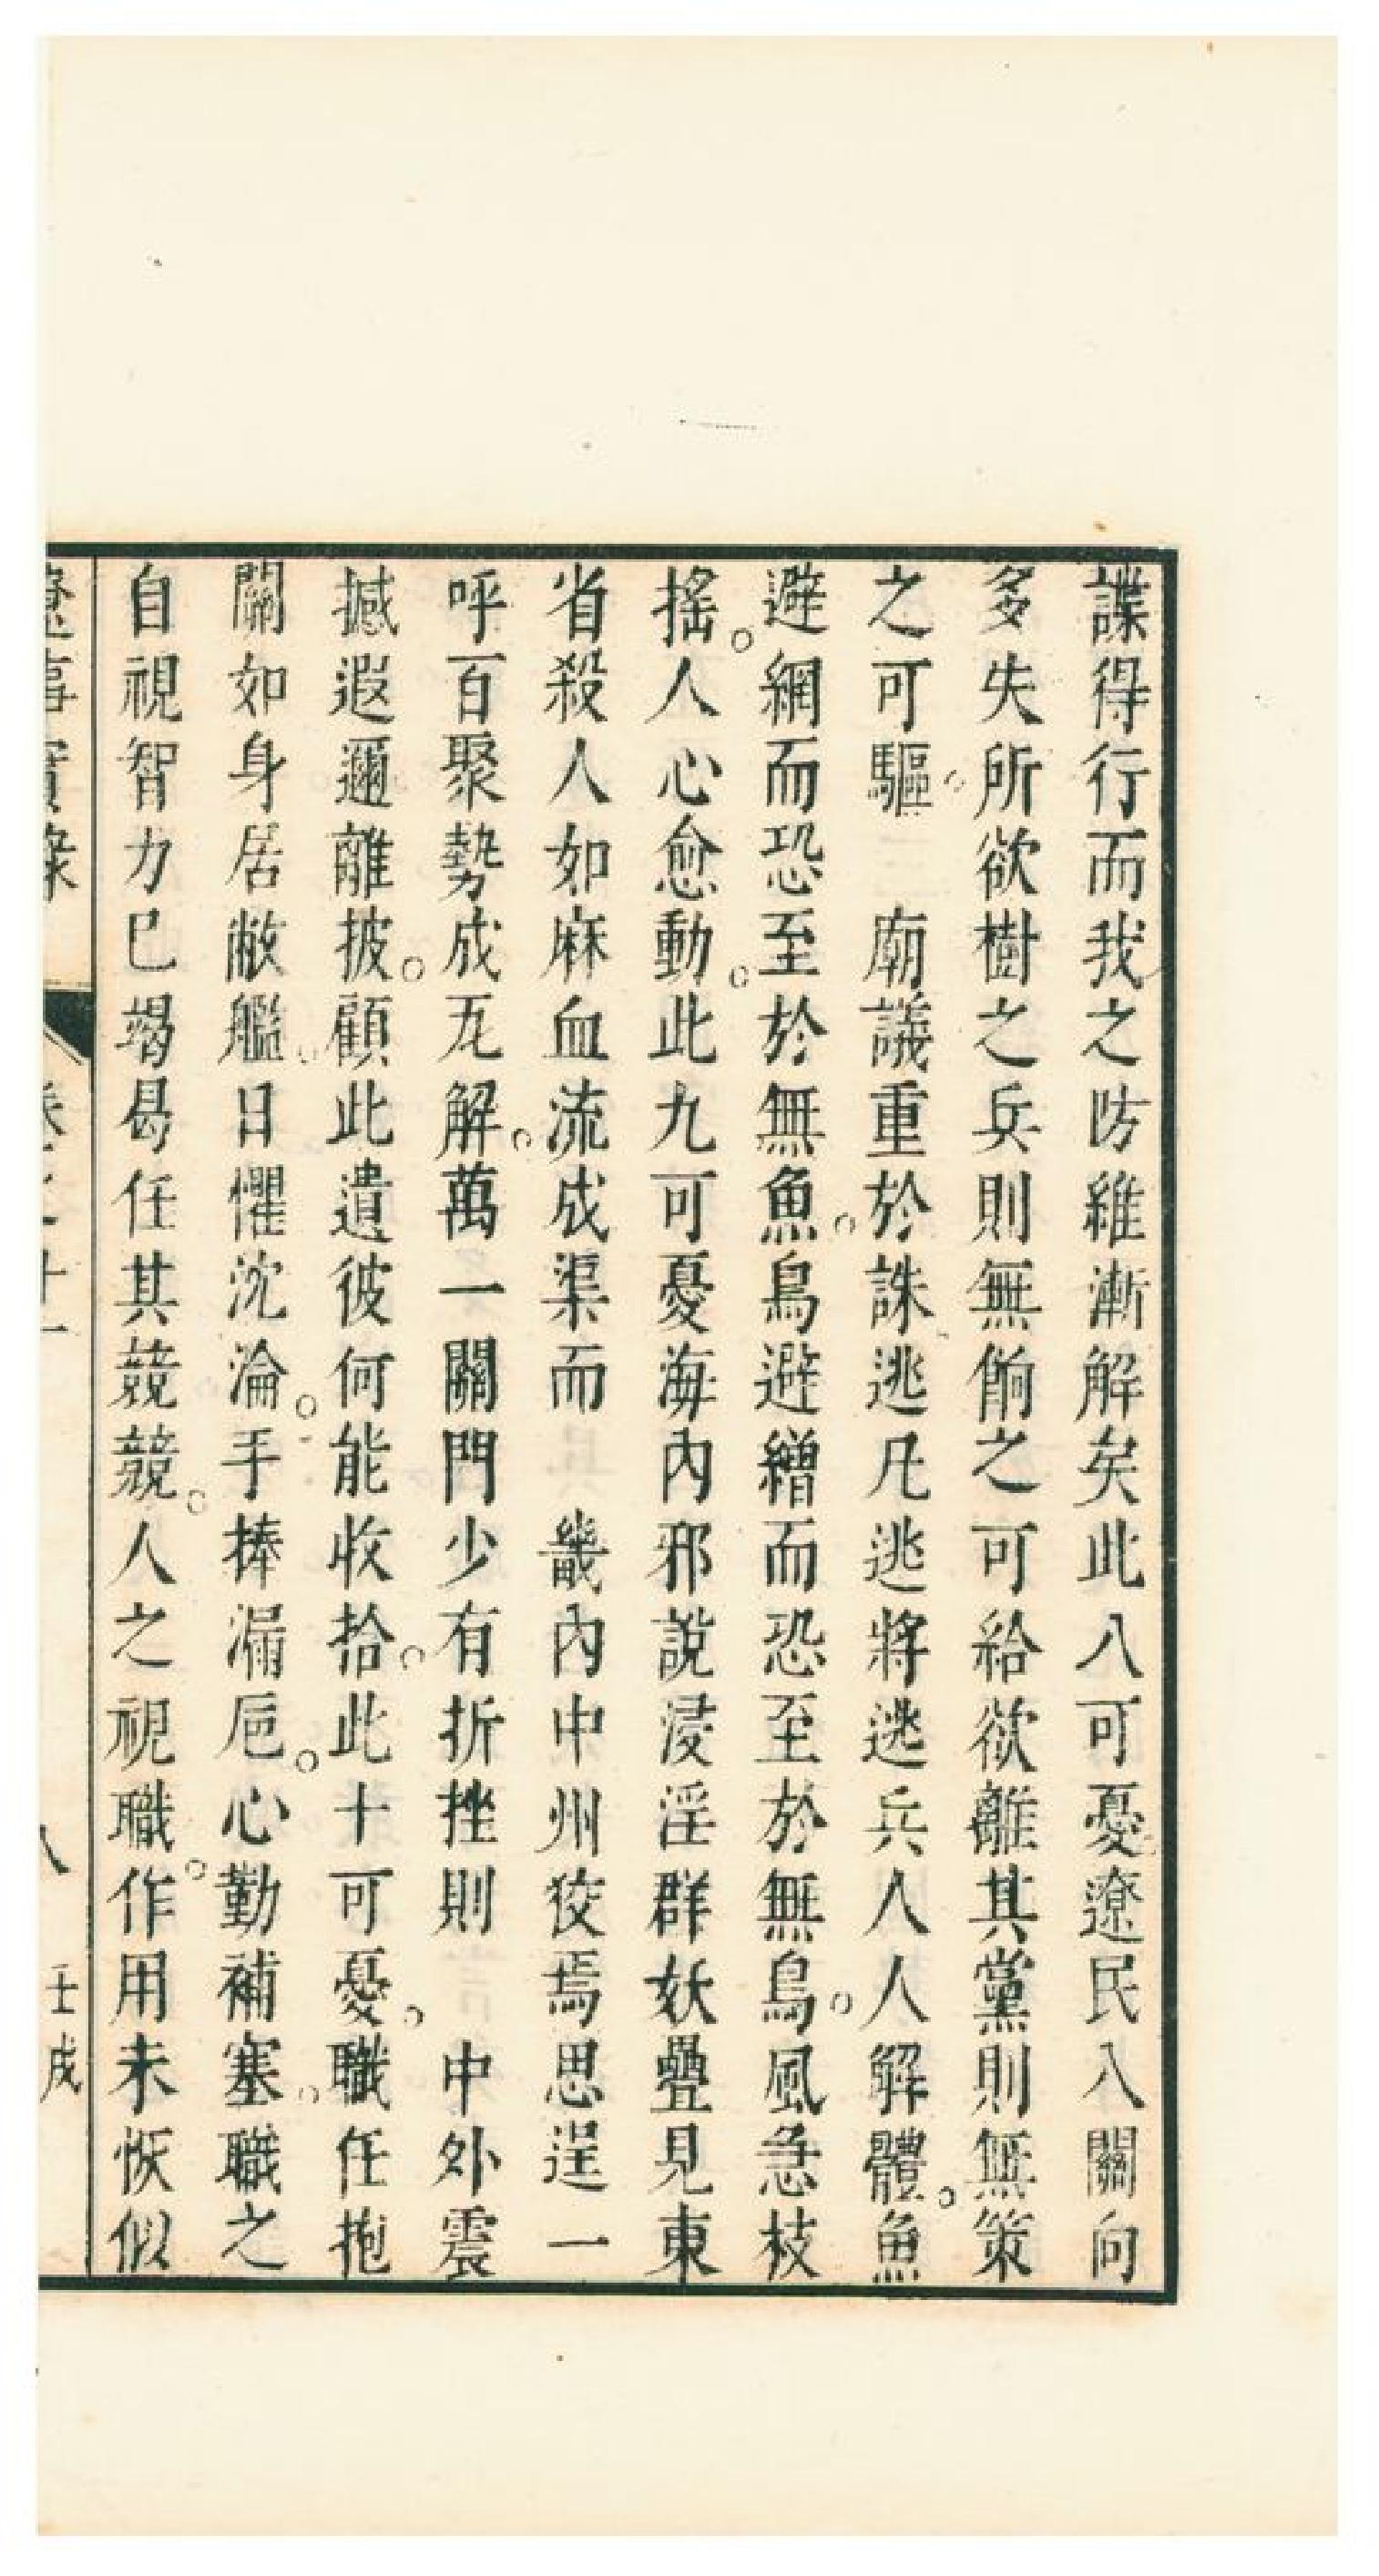 諜得行而我之防維漸解矣此八可憂遼民入關向
多失所欲樹之兵則無餉之可給欲離其黨則無策
之可驅　廟議重於誅逃凡逃將逃兵人人解體。魚
避網而恐至於無魚。鳥避繒而恐至於無鳥。風急枝
搖。人心愈動。此九可憂海內邪說浸淫群妖疊見東
省殺人如麻血流成渠而　畿內中州狡焉思逞一
呼百聚勢成瓦解。萬一關門少有折挫則　中外震
撼遐邇離披。顧此遺彼何能收拾。此十可憂。職任抱
關如身居敝艦。日懼沈淪。手捧漏巵。心勤補塞。職之
自視智力已竭曷任其競競。人之視職。作用未恢似
遼事實錄　卷之十一　八　壬戌